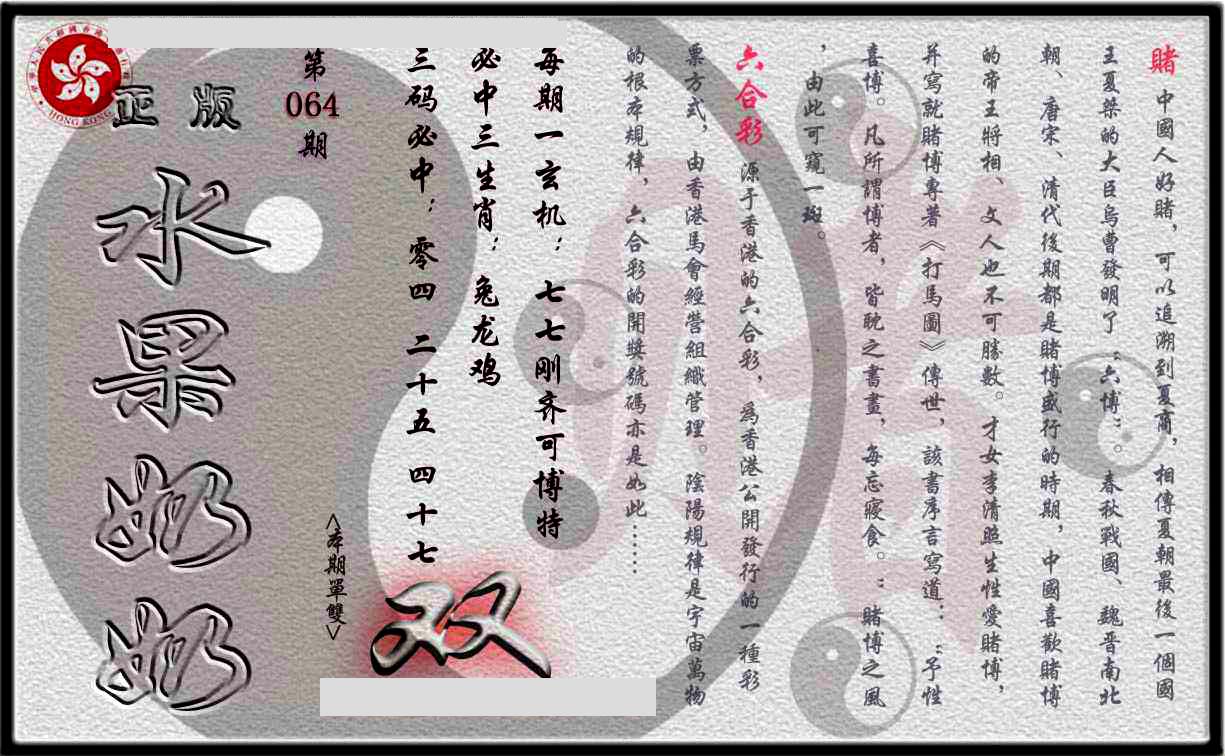 賭 中國人好賭，可以追溯到夏商，相傳夏朝最後一個國
王夏桀的大臣烏曹發明了“六博”。春秋戰國、魏晋南北
朝、唐宋、清代後期都是賭博盛行的時期，中國喜歡賭博
的帝王將相、文人也不可勝數。才女李清照生性愛賭博，
并寫就賭博專著《打馬圖》傳世，該書序言寫道：“予性
喜博。凡所謂博者，皆耽之書晝，每忘寢食。”賭博之風
，由此可窺一斑。
六合彩 源于香港的六合彩，為香港公開發行的一種彩
票方式，由香港馬會經營組織管理。陰陽規律是宇宙萬物
的根本規律，六合彩的開獎號碼亦是如此……
每期一玄机：七七刚齐可博特
必中三生肖：兔龙鸡
三码必中：零四 二十五 四十七
第
064
期
<本期單雙>
双
正版
水果奶奶
HONG KONG